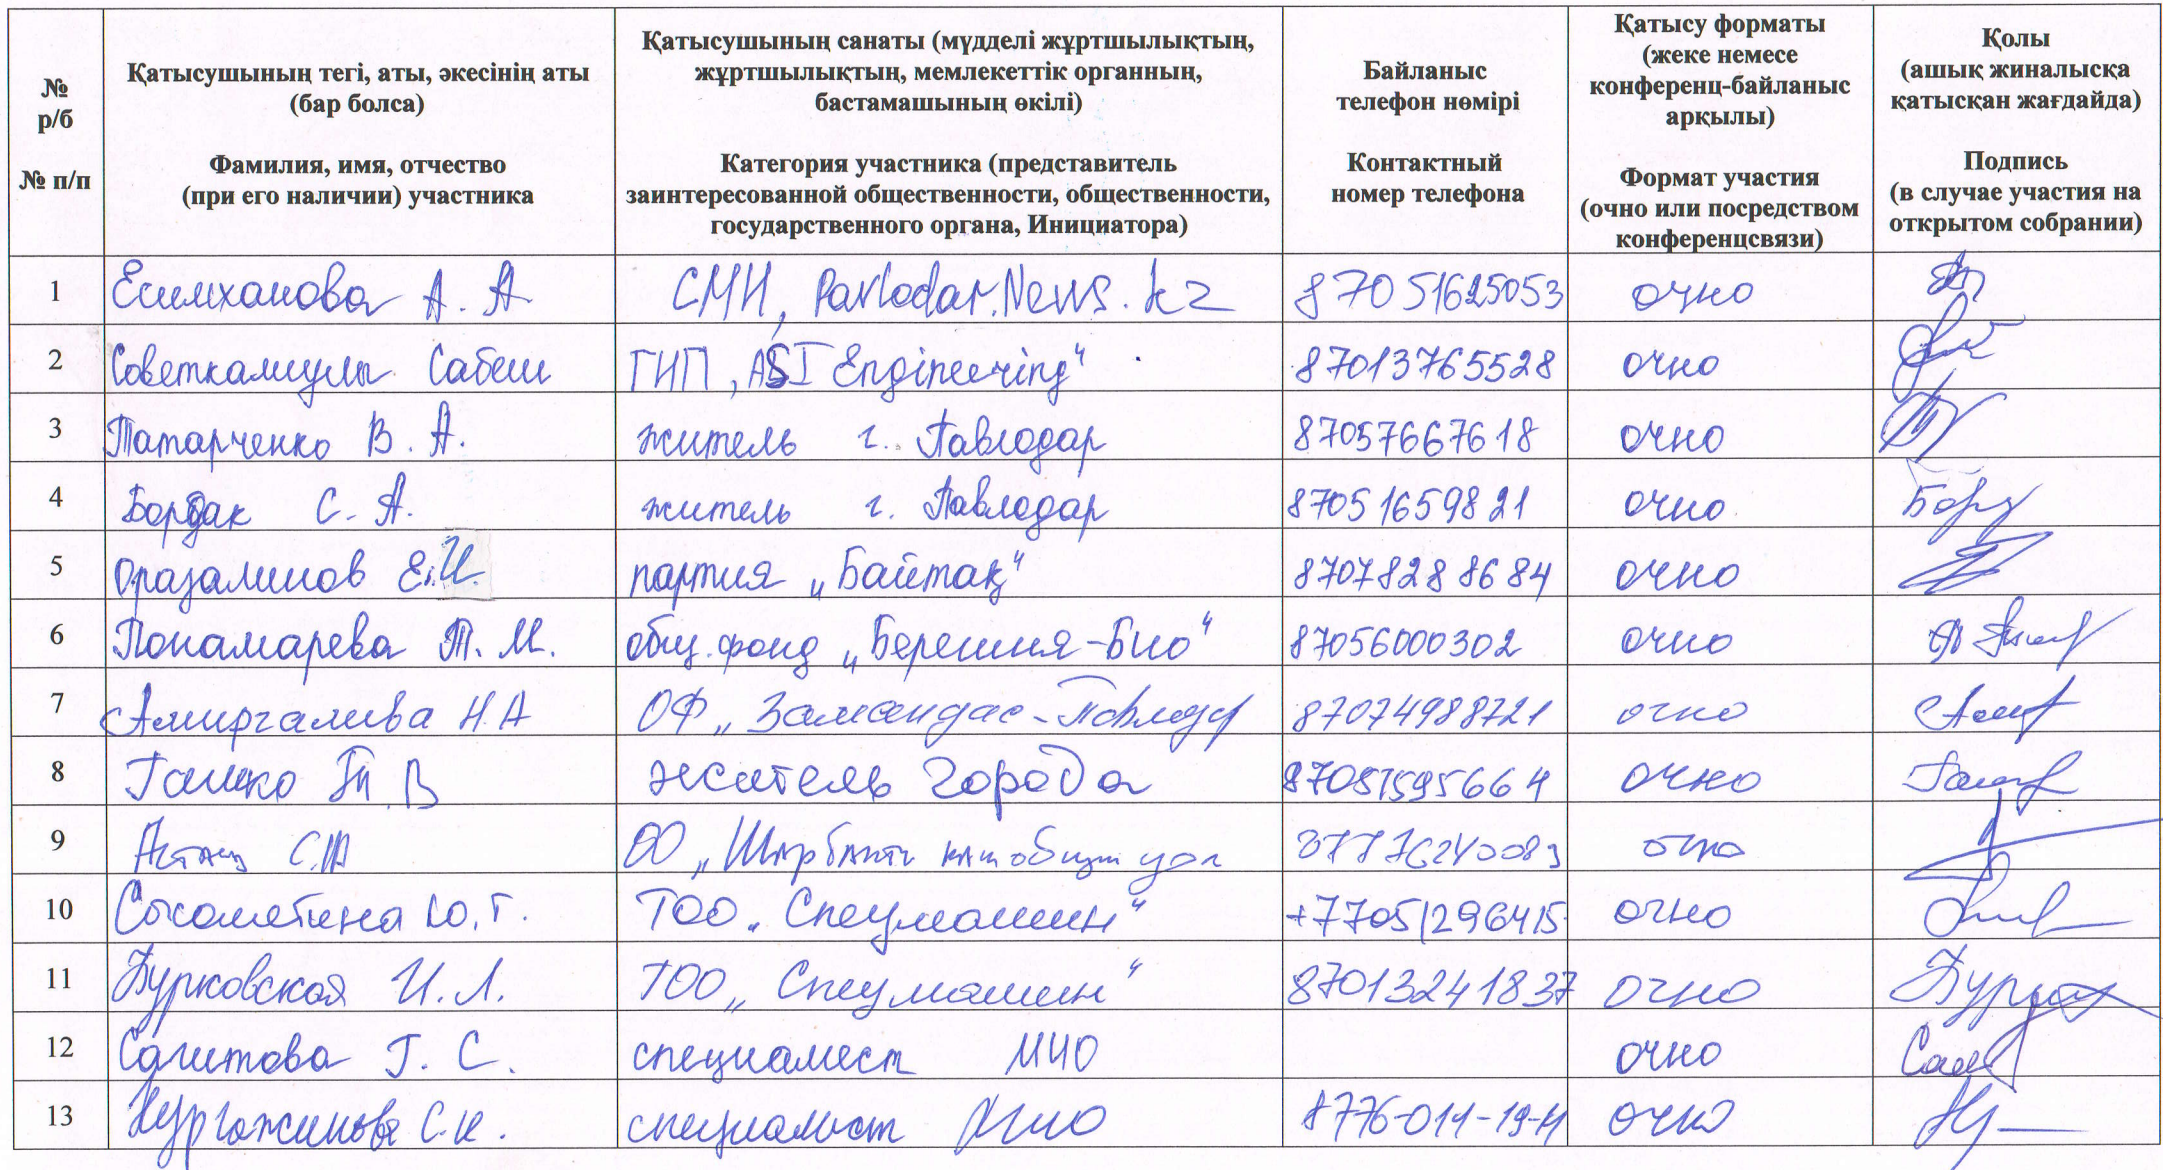 №
р/б
№ п/п
Қатысушының тегі, аты, әкесінің аты
(бар болса)
Фамилия, имя, отчество
(при его наличии) участника
Қатысушының санаты (мүдделі жұртшылықтың,
жұртшылықтың, мемлекеттік органның,
бастамашының өкілі)
Категория участника (представитель
заинтересованной общественности, общественности,
государственного органа, Инициатора)
Байланыс
телефон нөмірі
Контактный
номер телефона
Қатысу форматы
(жеке немесе
конференц-байланыс
арқылы)
Формат участия
(очно или посредством
конференцсвязи)
Қолы
(ашық жиналысқа
қатысқан жағдайда)
Подпись
(в случае участия на
открытом собрании)
1 Есимханова А. А СМИ, Pavlodar.News.kz 87051625053 очно
2 Советкамулы Сабеш ГИП „ASI Engineering" 87013765528 очно
3 Татарченко В. А. житель г. Павлодар 87057667618 очно
4 Бордак С. А. житель г. Павлодар 87051659821 очно
5 Оразалинов Е.И. партия „Байтақ" 87078288684 очно
6 Понамарева Т. М. общ. фонд „Берегиня-Био" 87056000302 очно
7 Амиргалива Н А ОФ „Замандас-Павлодар 87074988721 очно
8 Гашко Т. В житель города 87087595664 очно
9 ОО „ очно
10 Сысолятина Ю. Г. ТОО „Спецмашин" +77051296415 очно
11 Бурковская И. Л. ТОО „Спецмашин" 87013241837 очно
12 Сагитова Г. С. специалист очно
13 Нургожинова С.К. специалист очно